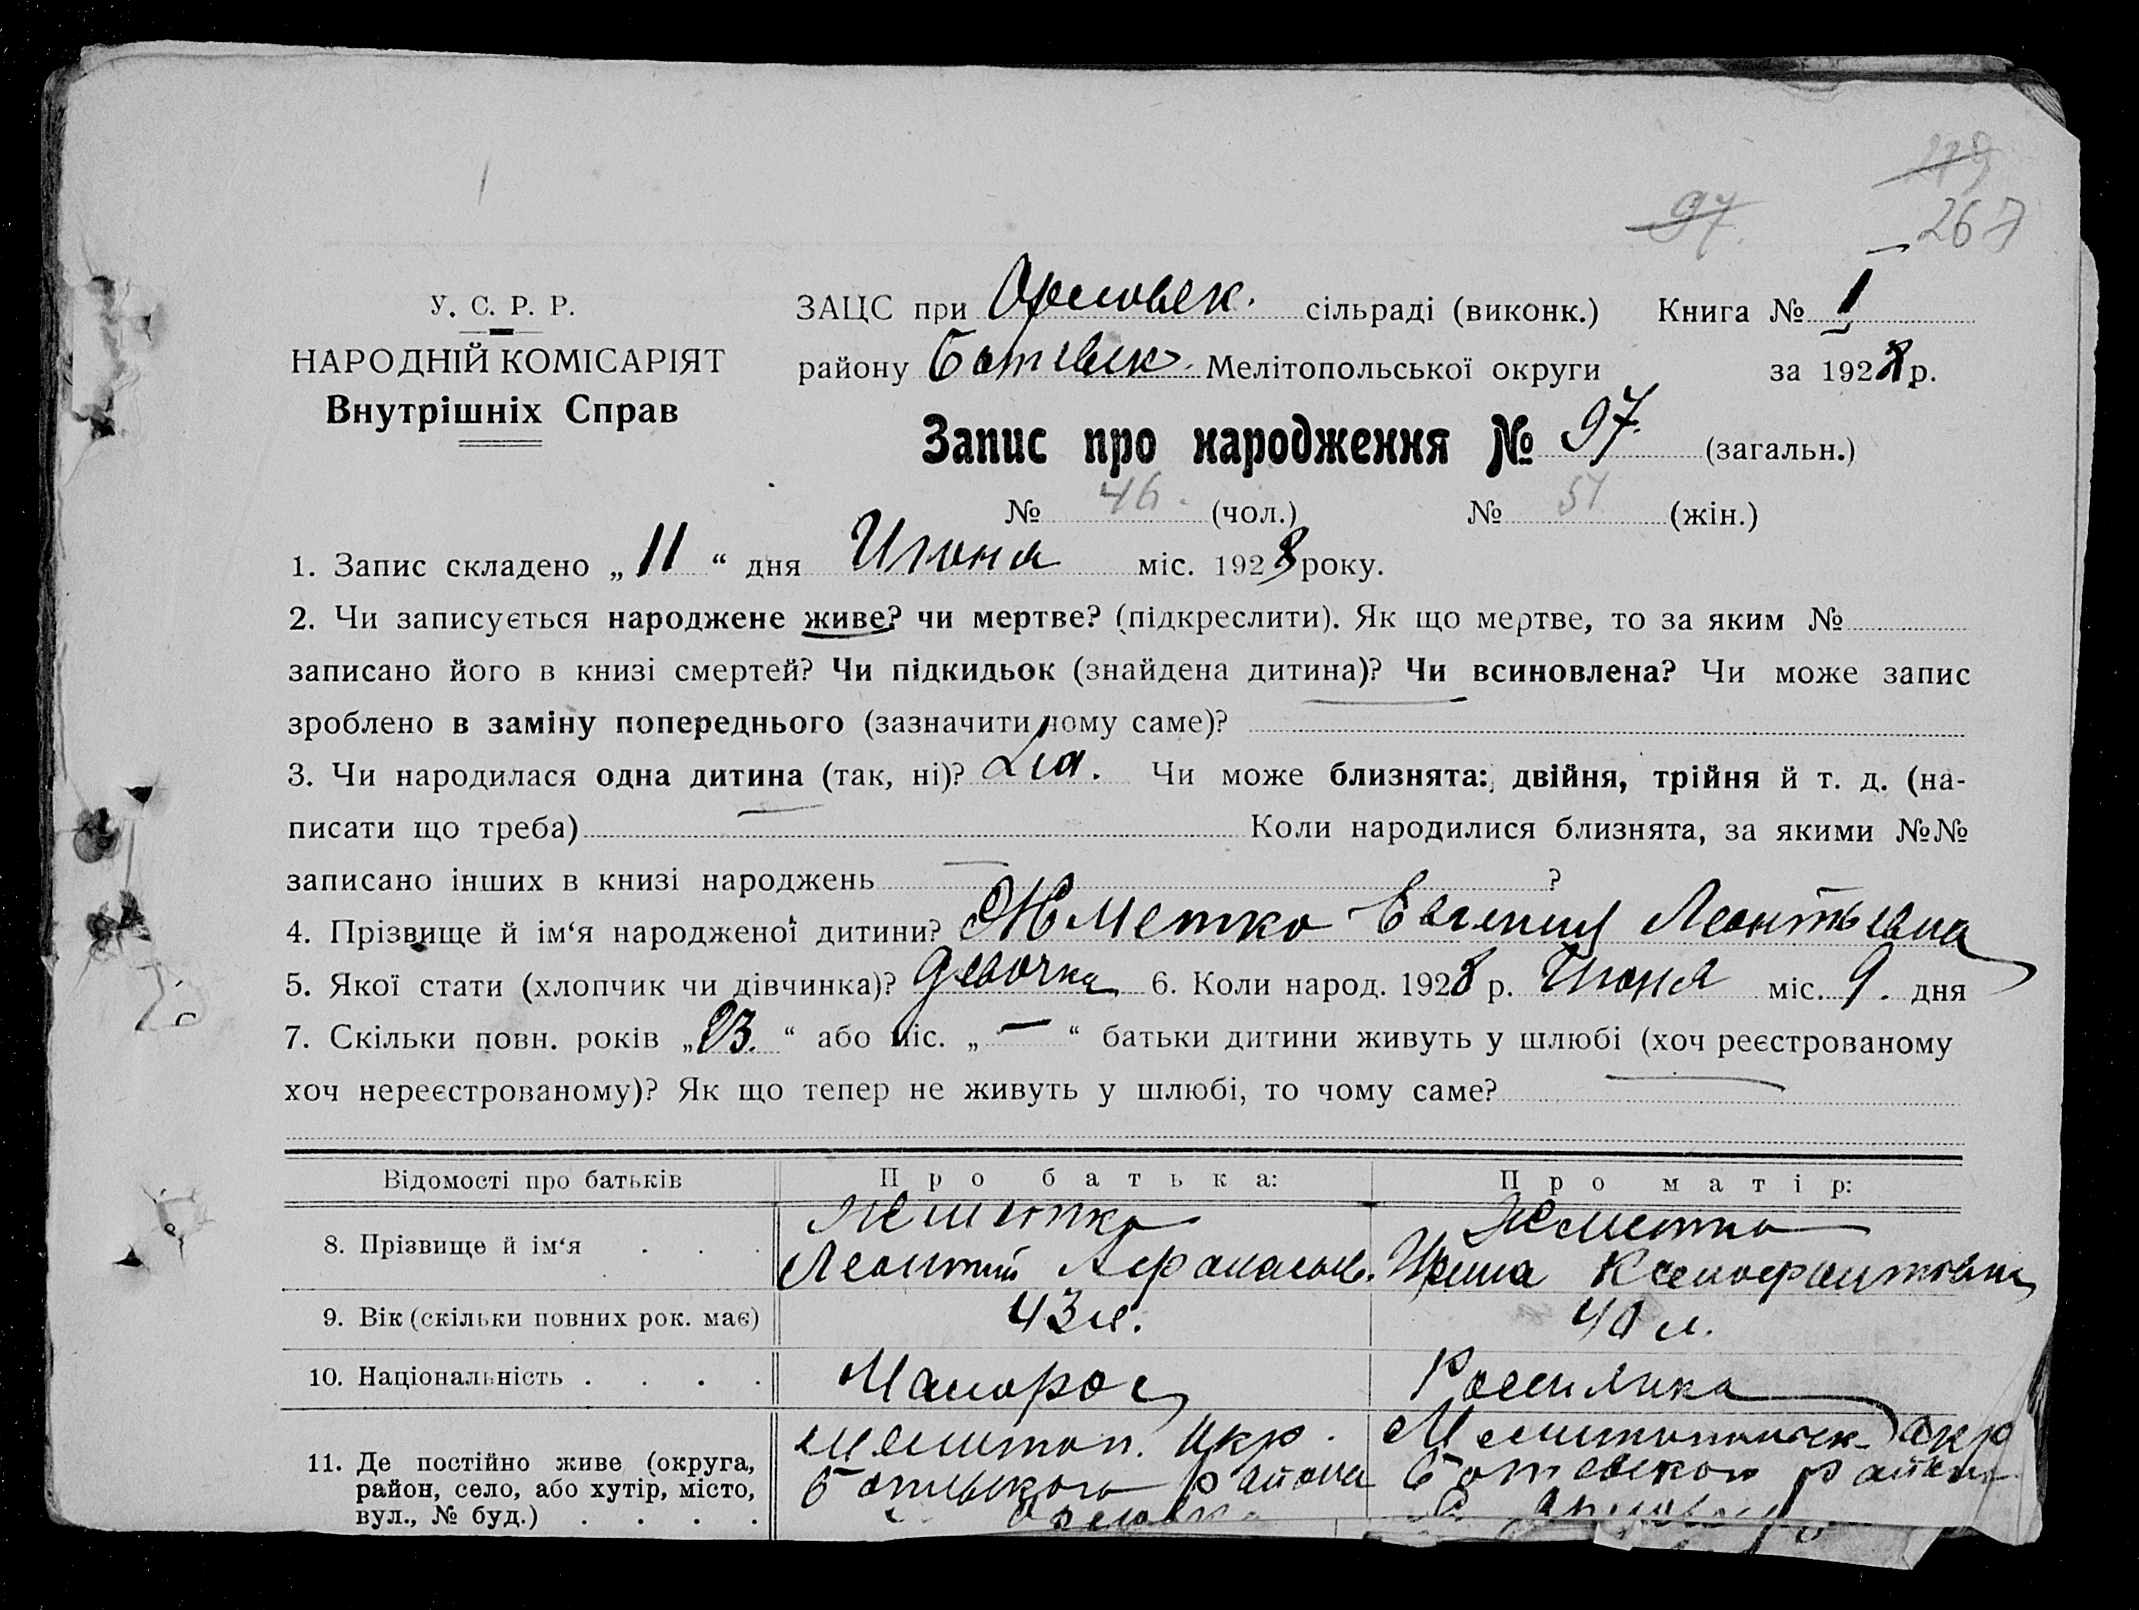 119
97.
267
У. С. Р. Р.
НАРОДНІЙ КОМІСАРІЯТ
Внутрішніх Справ
ЗАЦС при Орловск. сільраді (виконк.) Книга № I
району Ботевск. Мелітопольської округи за 1928 р.
Запис про народження № 97. (загальн.)
№ 46. (чол.) № 51 (жін.)
1. Запис складено „ 11 “ дня Июня міс. 1928 року.
2. Чи записується народжене живе? чи мертве? (підкреслити). Як що мертве, то за яким №
записано його в книзі смертей? Чи підкидьок (знайдена дитина)? Чи всиновлена? Чи може запис
зроблено в заміну попереднього (зазначити чому саме)?
3. Чи народилася одна дитина (так, ні)? Да. Чи може близнята: двійня, трійня й т. д. (на-
писати що треба) — Коли народилися близнята, за якими №№
записано інших в книзі народжень — ?
4. Прізвище й ім‘я народженої дитини? Жметко Евгения Леонтьевна
5. Якої стати (хлопчик чи дівчинка)? девочка 6. Коли народ. 1928 р. Июня міс. 9. дня
7. Скільки повн. років „ 23. “ або міс. „ — “ батьки дитини живуть у шлюбі (хоч реєстрованому
хоч нереєстрованому)? Як що тепер не живуть у шлюбі, то чому саме? —
Відомості про батьків Про батька: Про матір:
8. Прізвище й ім‘я . . . Жметко Леонтий Афанасьев. Жметко Ирина Ксенофонтовна
9. Вік (скільки повних рок. має) 43 л. 40 л.
10. Національність . . . . Малорос Россиянка
11. Де постійно живе (округа, Мелитоп. Окр. Мелитопольск. окр
район, село, або хутір, місто, Ботевского района Ботевского района
вул., № буд.) . . . . с. Орловка с. Орловка